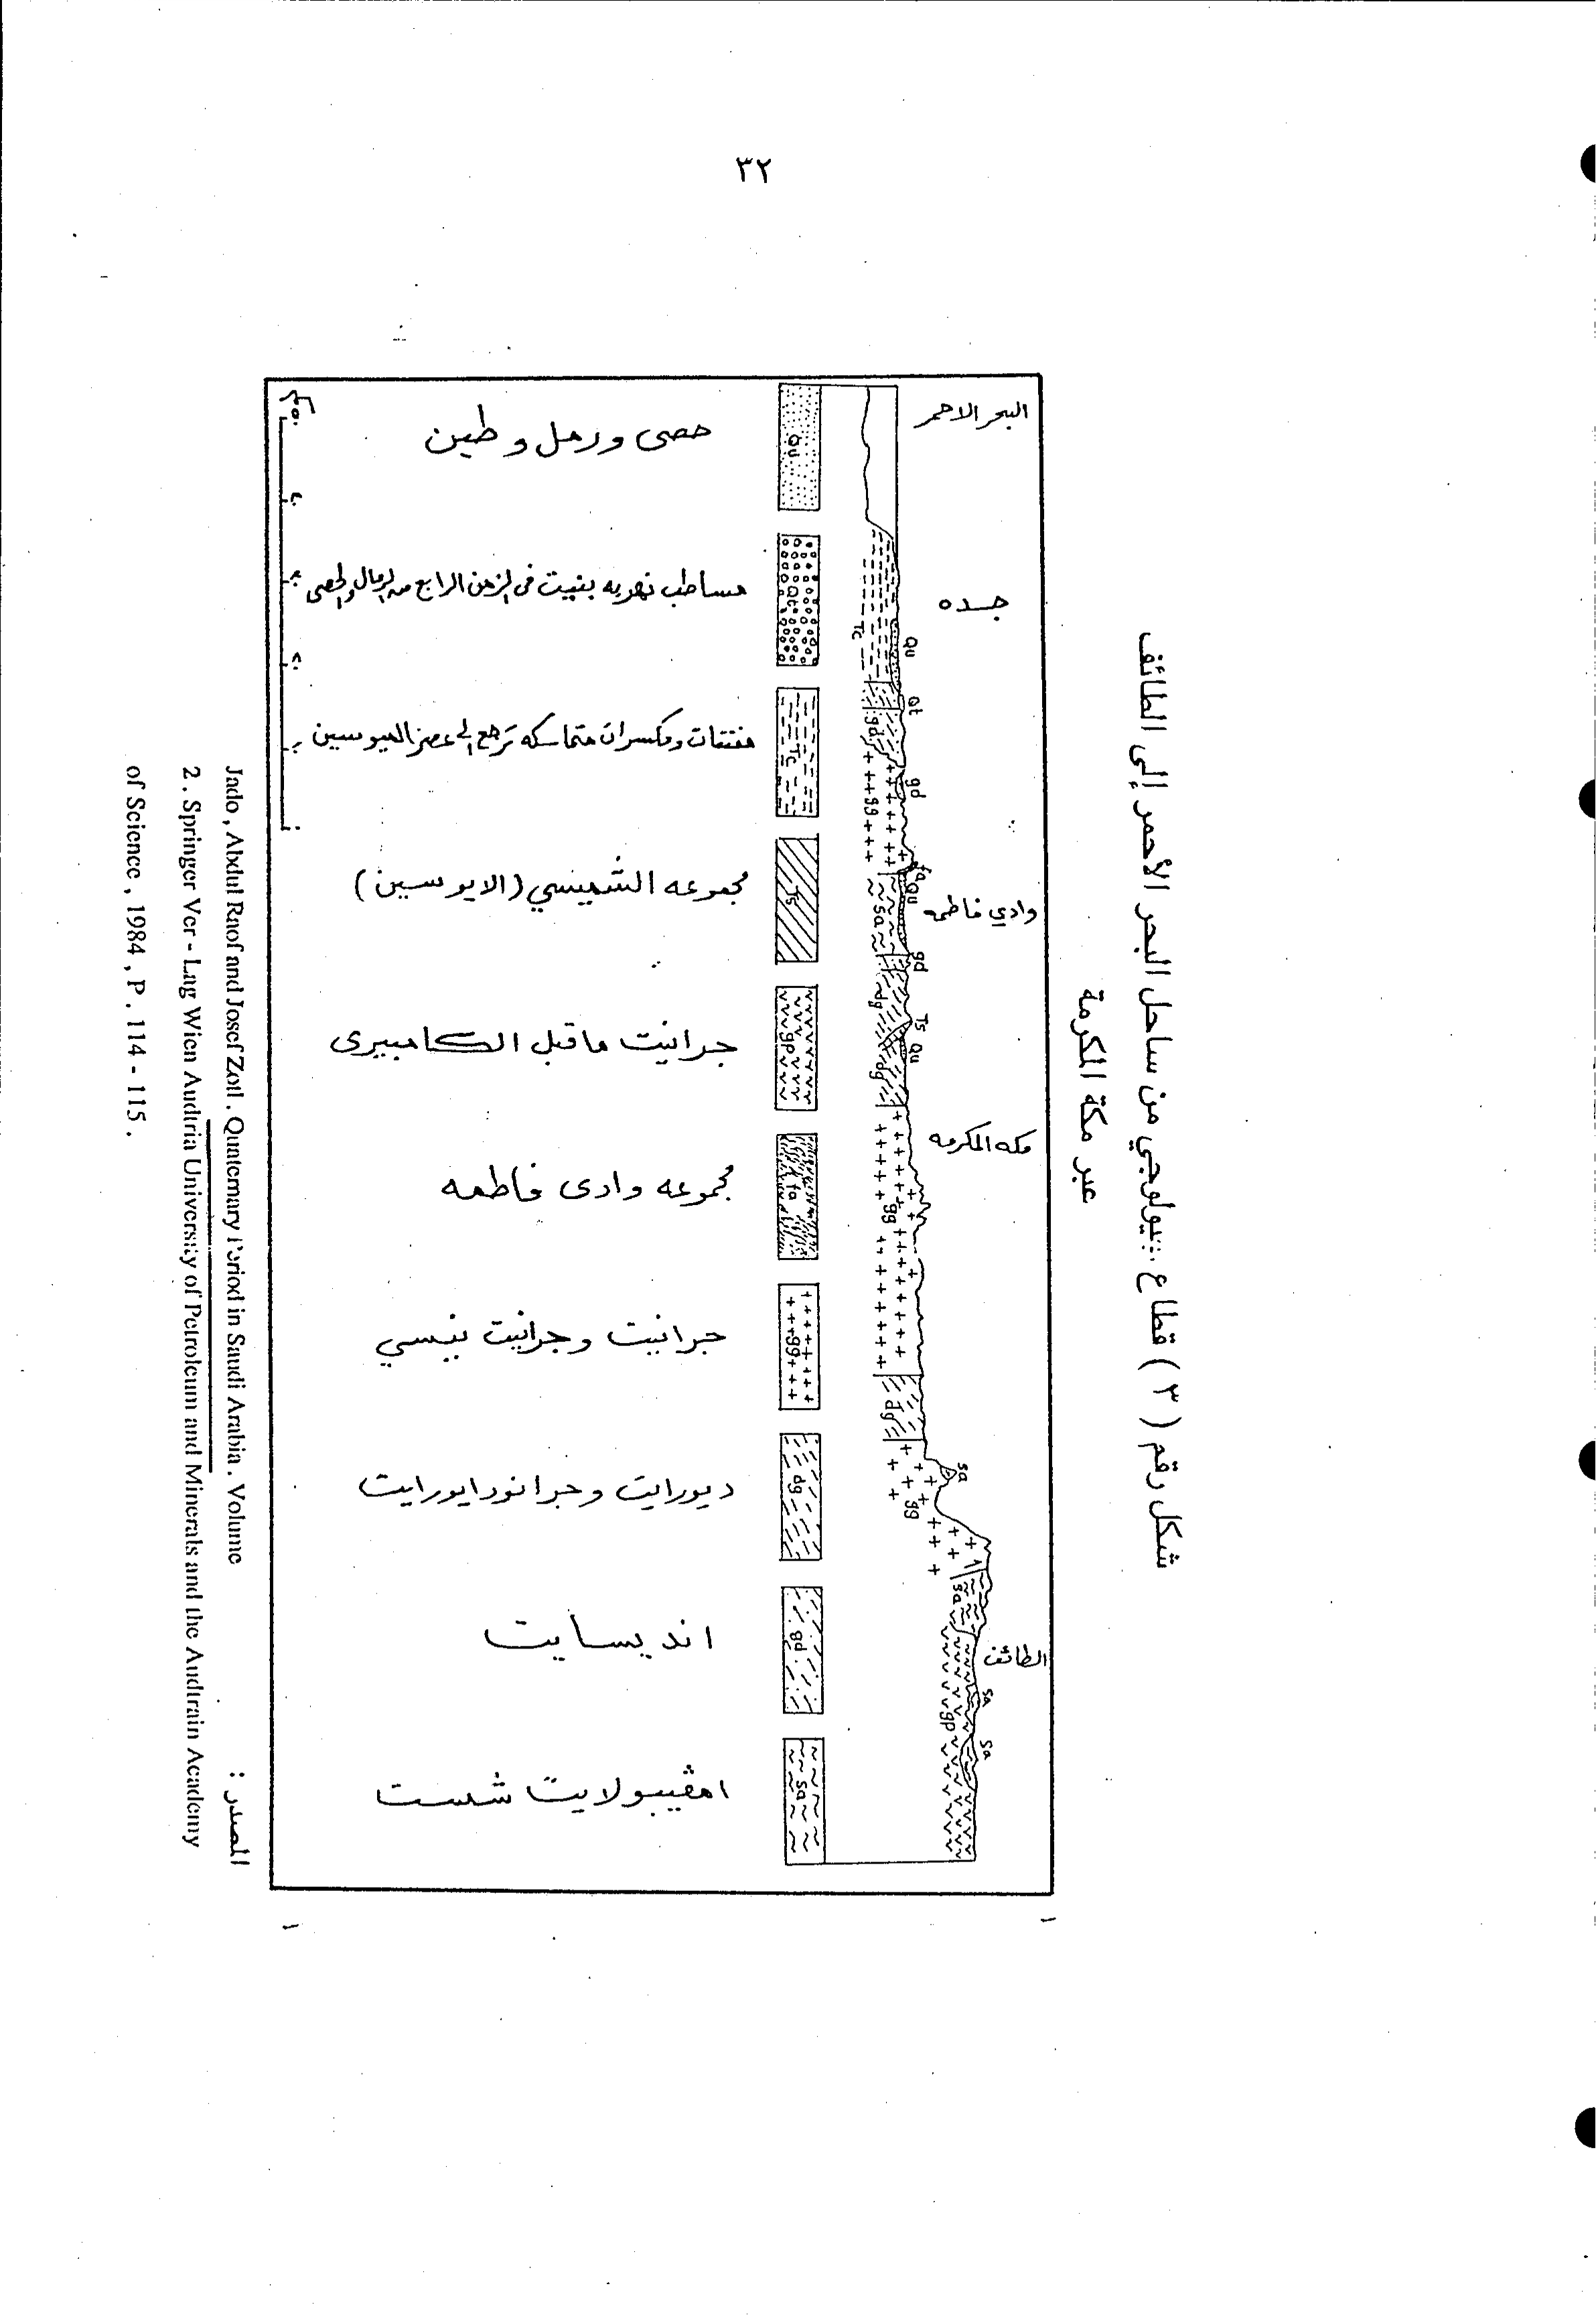 ٣٢
شكل رقم ( ٣ ) قطاع جيولوجي من ساحل البحر الأحمر إلى الطائف
عبر مكة المكرمة
البحر الاحمر
جده
وادي فاطمه
مكه المكرمه
الطائف
Qu
Tc
Qt
gd
gd
gg
fa
Qu
sa
gd
dg
Ts
Qu
dg
gg
dg
sa
gg
sa
sa
gp
sa
Qu
حصى ورمل وطين
Qt
مساطب نهريه بنيت في الزمن الرابع من الرمال والحصى
Tc
مفتتات ومكسرات متماسكه ترجع الى عصر الميوسين
Ts
مجموعه الشميسي (الايوسين)
gp
جرانيت ماقبل الكامبيرى
fa
مجموعه وادى فاطمه
gg
جرانيت وجرانيت نيسي
dg
ديورايت وجرانودايورايت
gd
انديسايت
sa
امفيبولايت شست
المصدر :
Jado , Abdul Raof and Josef Zotl . Quatemary Period in Saudi Arabia . Volume
2 . Springer Ver - Lag Wien Audtria University of Petroleum and Minerals and the Audtrain Academy
of Science , 1984 , P . 114 - 115 .